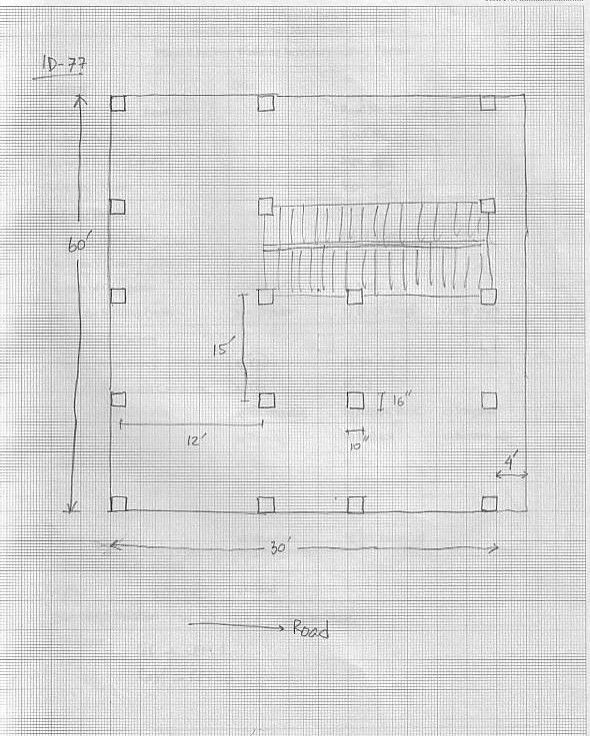 ID-77
60'
15'
16"
12'
10"
4'
30'
Road